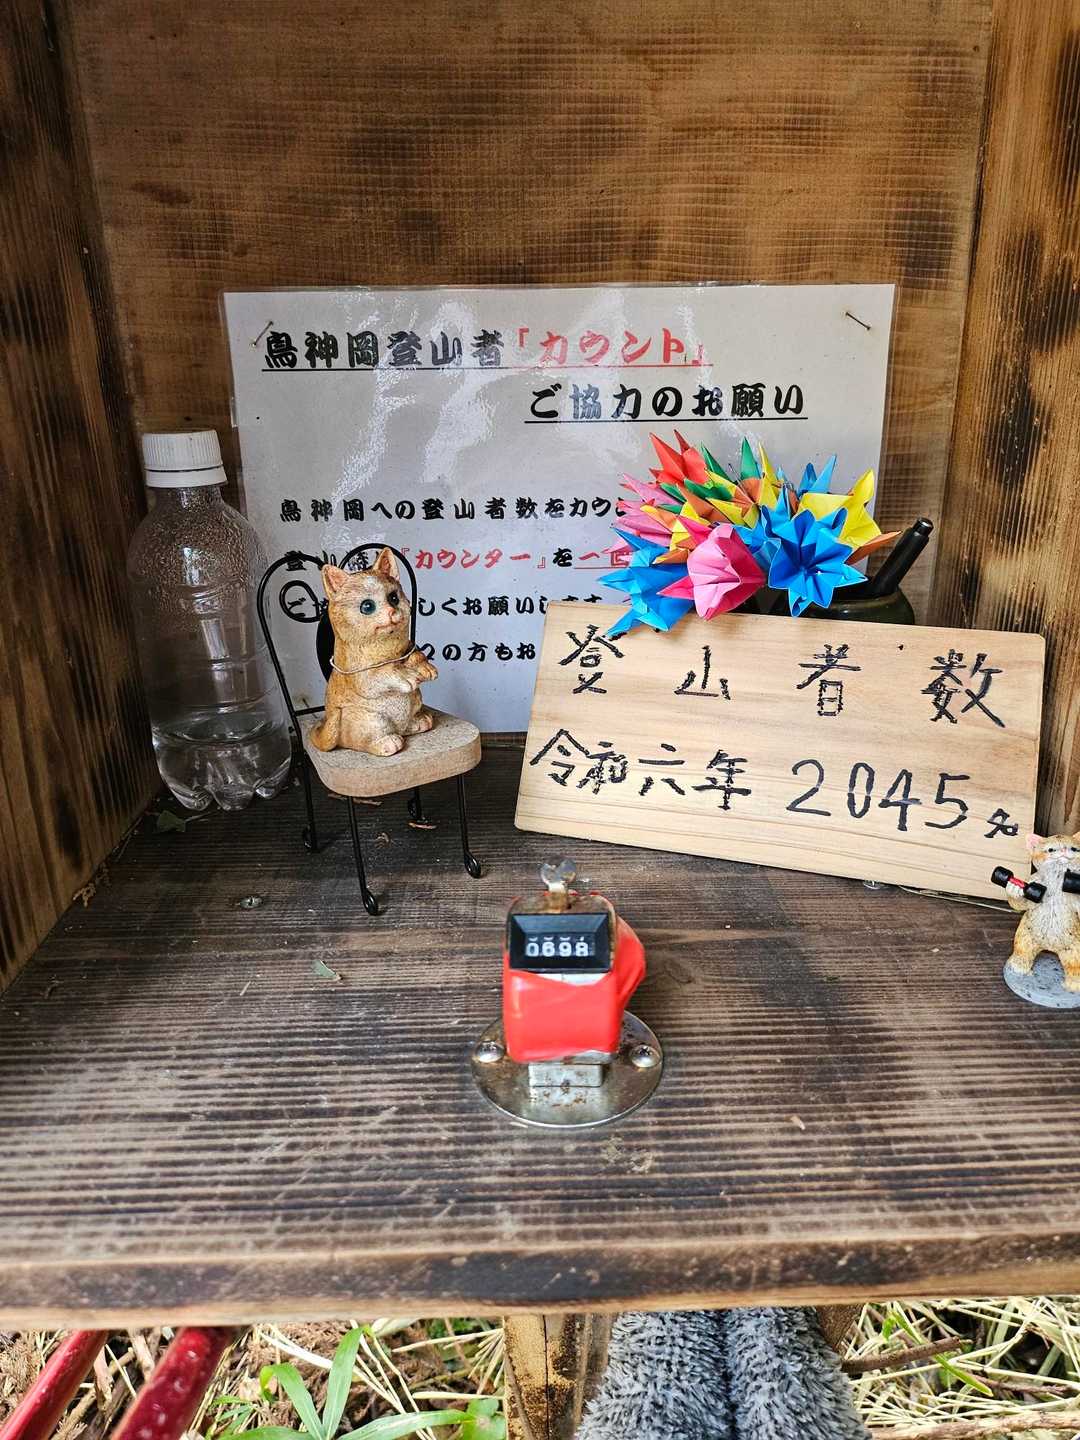 鳥神岡登山者「カウント」
ご協力のお願い
鳥神岡への登山者数をカウン
登山 『カウンター』を一回
しくお願いします
の方もお
登山者数
令和六年 2045名
0698